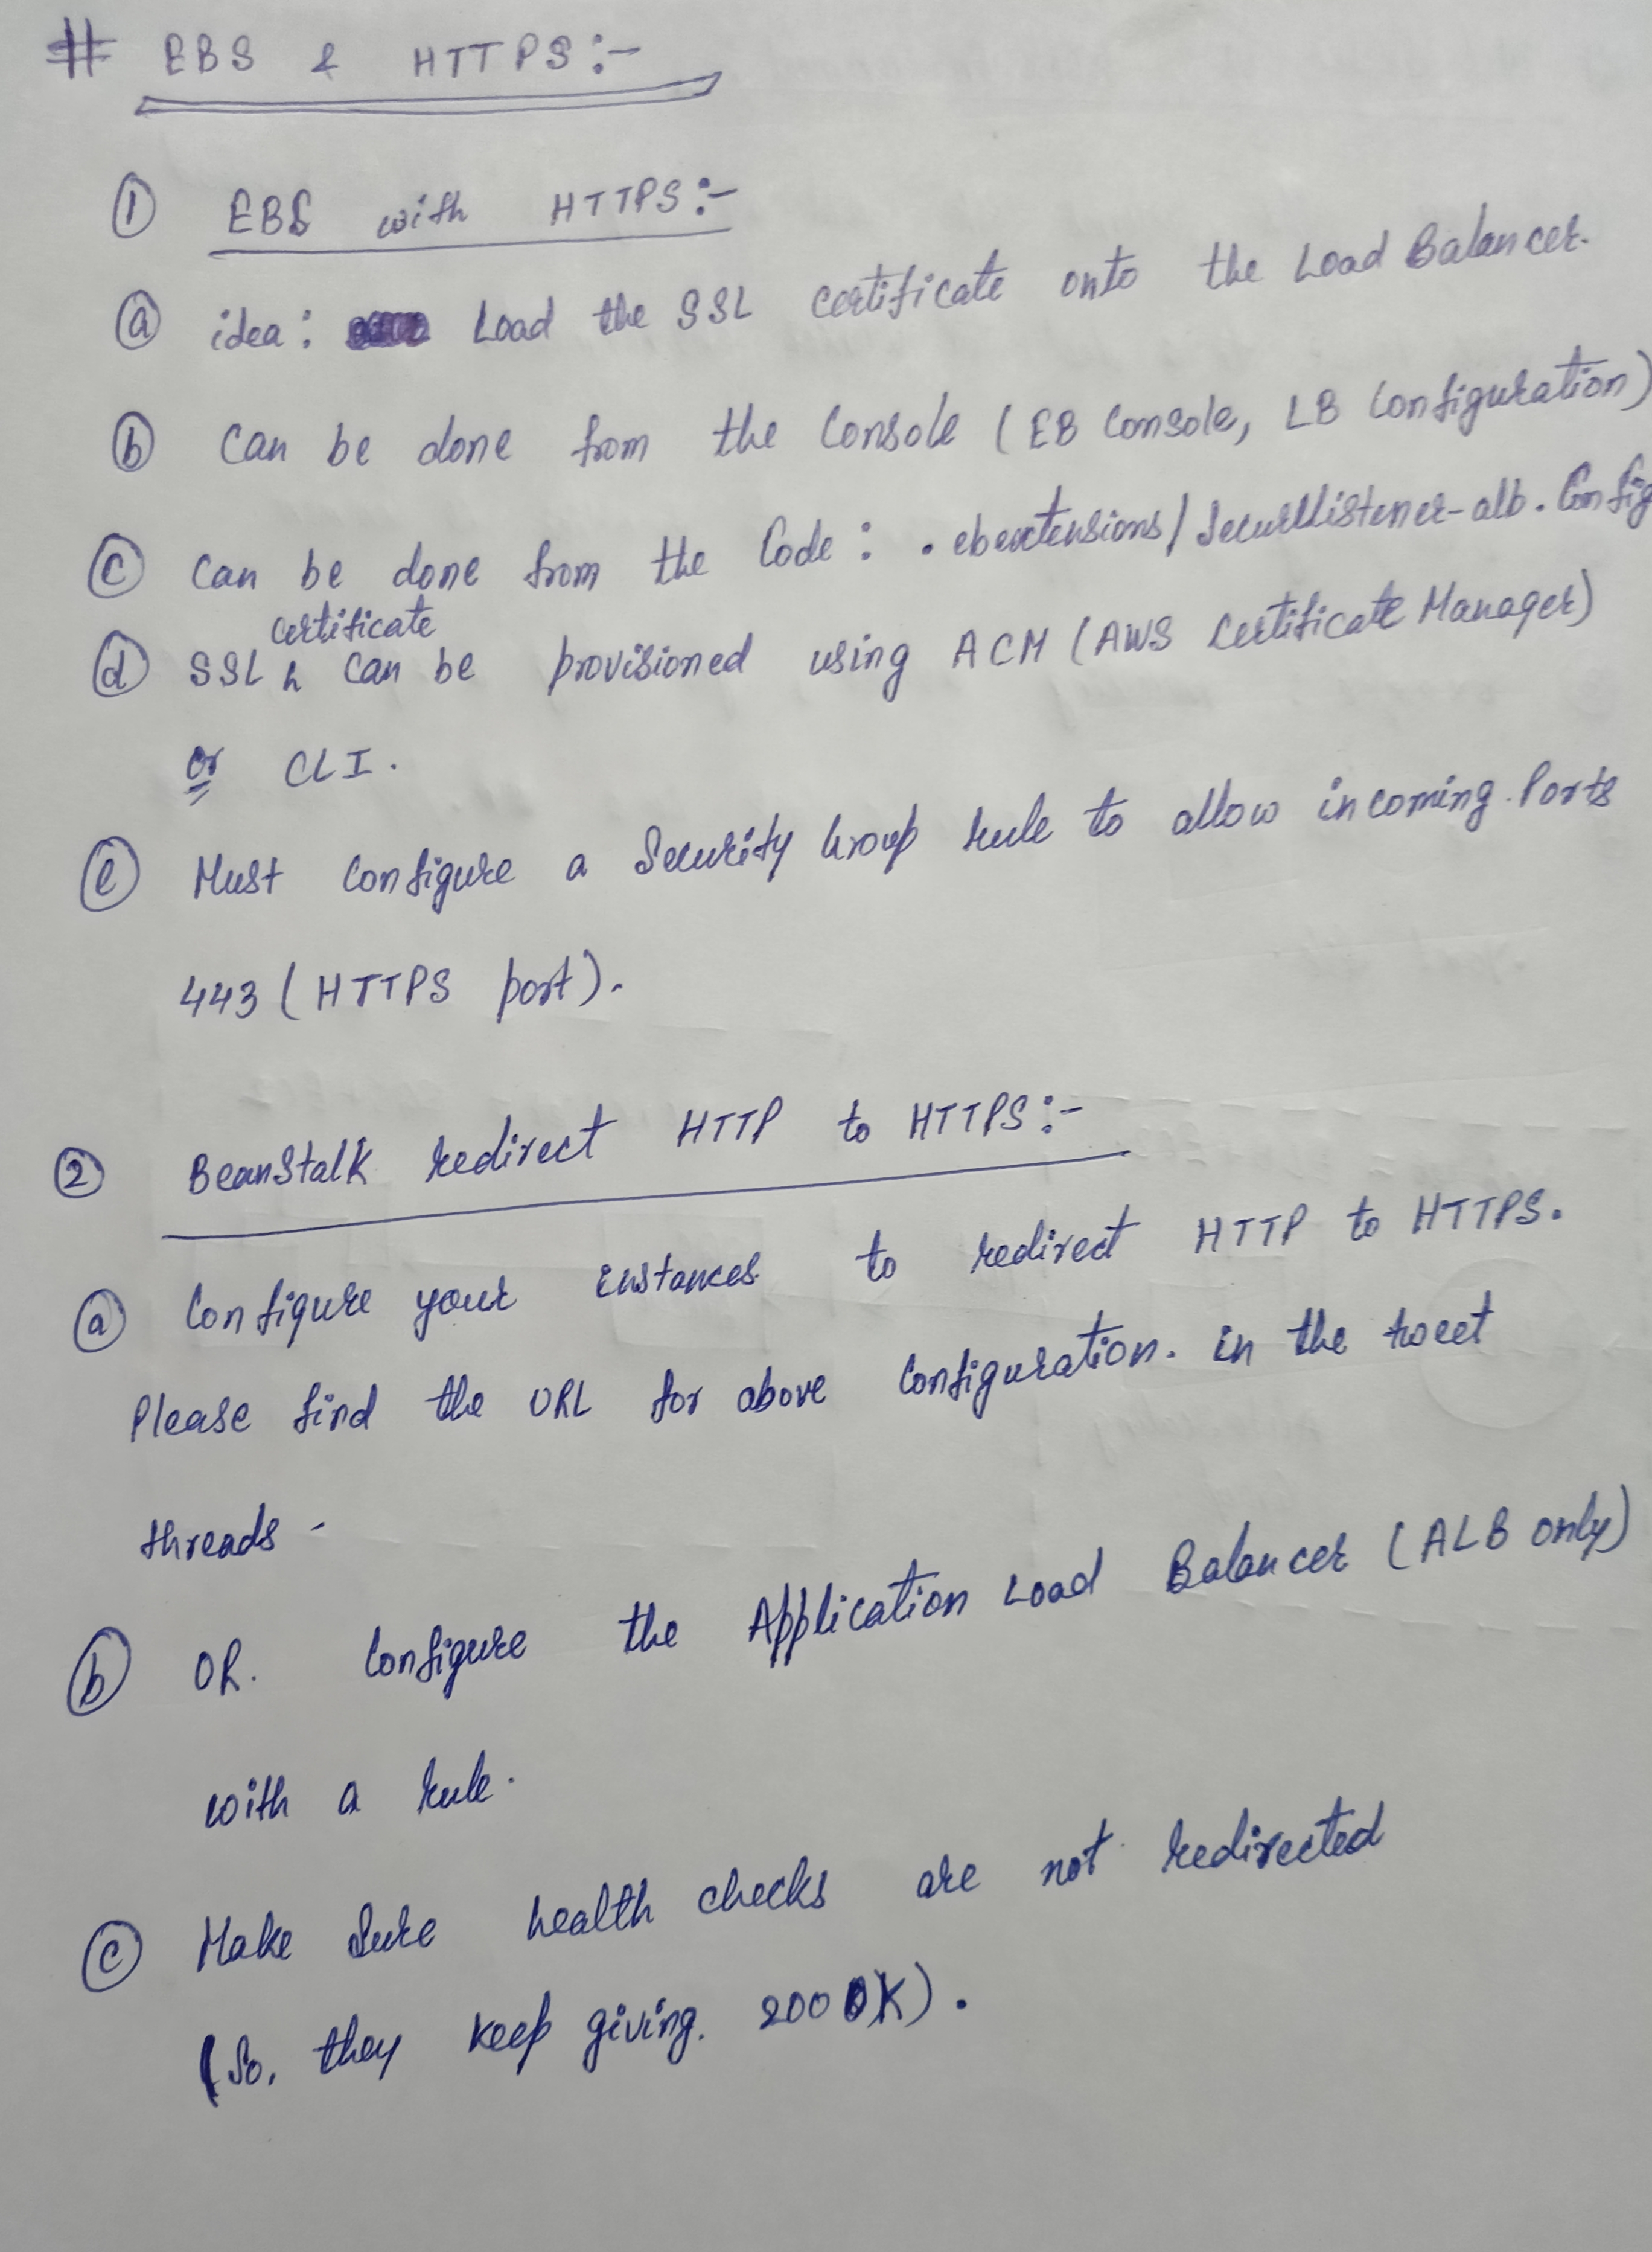 # EBS & HTTPS:-
① EBS with HTTPS:-
ⓐ idea: Load the SSL certificate onto the Load Balancer.
ⓑ Can be done from the Console (EB Console, LB Configuration)
ⓒ Can be done from the Code: .ebextensions/SecureListener-alb.Config
certificate
ⓓ SSL can be provisioned using ACM (AWS Certificate Manager)
or CLI.
ⓔ Must Configure a Security Group rule to allow incoming Ports
443 (HTTPS port).
② BeanStalk redirect HTTP to HTTPS:-
ⓐ Configure your instances to redirect HTTP to HTTPS.
Please find the URL for above Configuration. in the tweet
threads -
ⓑ OR. Configure the Application Load Balancer (ALB only)
with a rule.
ⓒ Make Sure health checks are not redirected
(So, they keep giving. 200 OK).